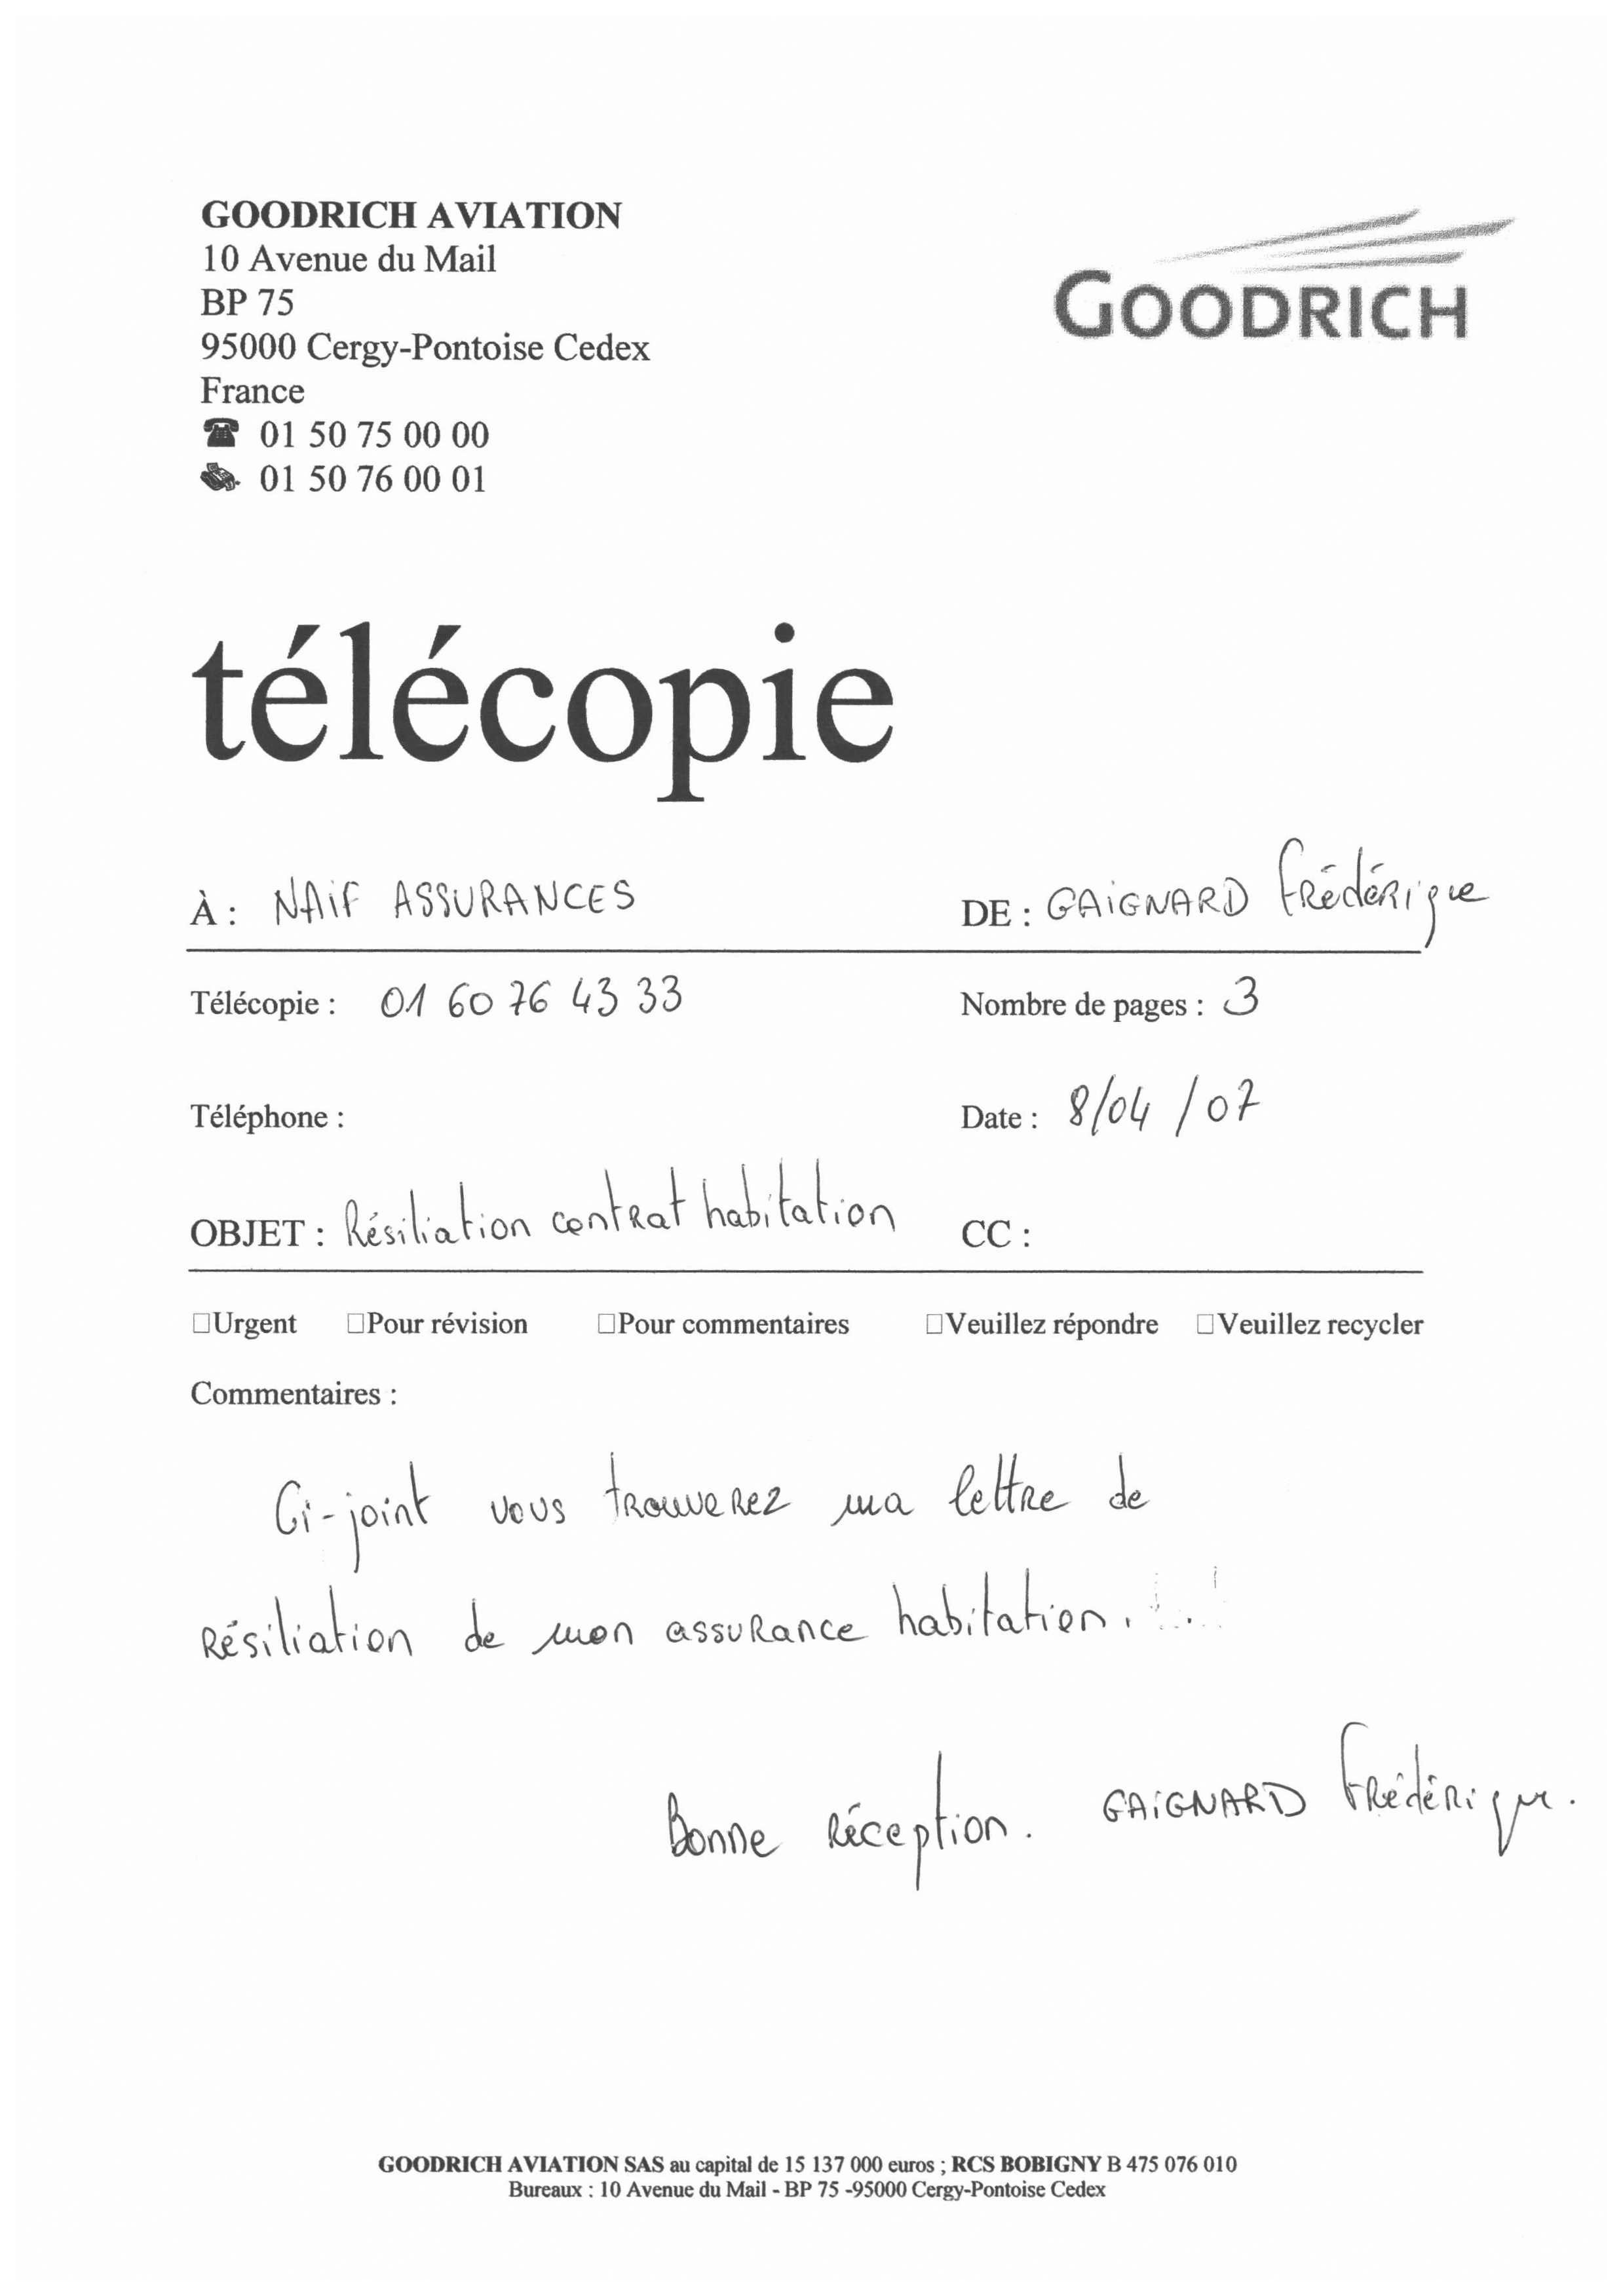 GOODRICH AVIATION
10 Avenue du Mail
BP 75
95000 Cergy-Pontoise Cedex
France
☎ 01 50 75 00 00
01 50 76 00 01
GOODRICH
télécopie
À : NAIF ASSURANCES DE : GAIGNARD Frédérique
Télécopie : 01 60 76 43 33 Nombre de pages : 3
Téléphone : Date : 8/04/07
OBJET : Résiliation contrat habitation CC :
☐Urgent ☐Pour révision ☐Pour commentaires ☐Veuillez répondre ☐Veuillez recycler
Commentaires :
Ci-joint vous trouverez ma lettre de
résiliation de mon assurance habitation.
Bonne réception. GAIGNARD Frédérique.
GOODRICH AVIATION SAS au capital de 15 137 000 euros ; RCS BOBIGNY B 475 076 010
Bureaux : 10 Avenue du Mail - BP 75 -95000 Cergy-Pontoise Cedex